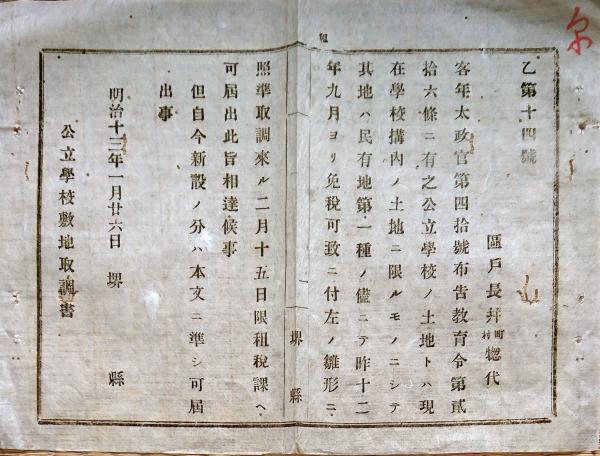 乙第十四號
區戸長并町村惣代
客年太政官第四拾號布吿敎育令第貳
拾六條ニ有之公立學校ノ土地トハ現
在學校搆内ノ土地ニ限ルモノニシテ
其地ハ民有地第一種ノ儘ニテ昨十二
年九月ヨリ免税可致ニ付左ノ雛形ニ
堺縣
照準取調來ル二月十五日限租税課ヘ
可屆出此旨相達候事
但自今新設ノ分ハ本文ニ準シ可屆
出事
明治十三年一月廿六日 堺縣
公立學校敷地取調書